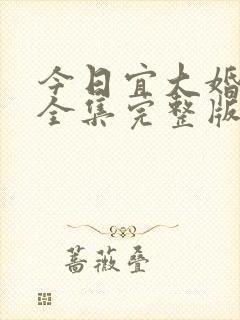 今日宜大婚
全集完整版
蔷薇叠